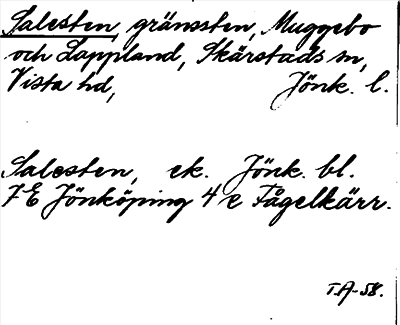 Salesten, gränssten, Muggebo
och Lappland, Skärstads sn,
Vista hd, Jönk. l.
Salesten, ek. Jönk. bl.
7 E Jönköping 4 e Fågelkärr.
T.A-58.